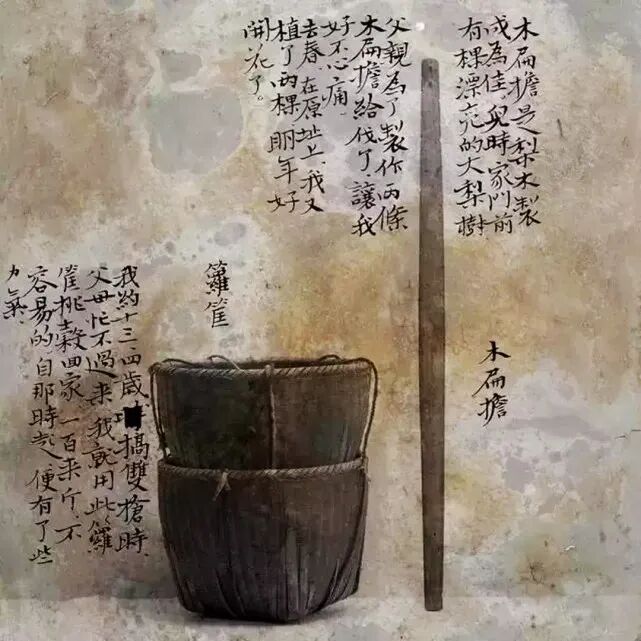 木扁擔是梨木製
成為佳，兒時家門前
有棵漂亮的大梨樹
父親為了製作兩條
木扁擔給伐了讓我
好不心痛，
去春在原址上，我又
植了兩棵，明年好
開花了。
木扁擔
籮筐
我約十三、四歲搞雙槍時，
父母忙不過來，我就用此籮
筐挑穀回家，一百來斤，不
容易的，自那時起，便有了些
力氣。